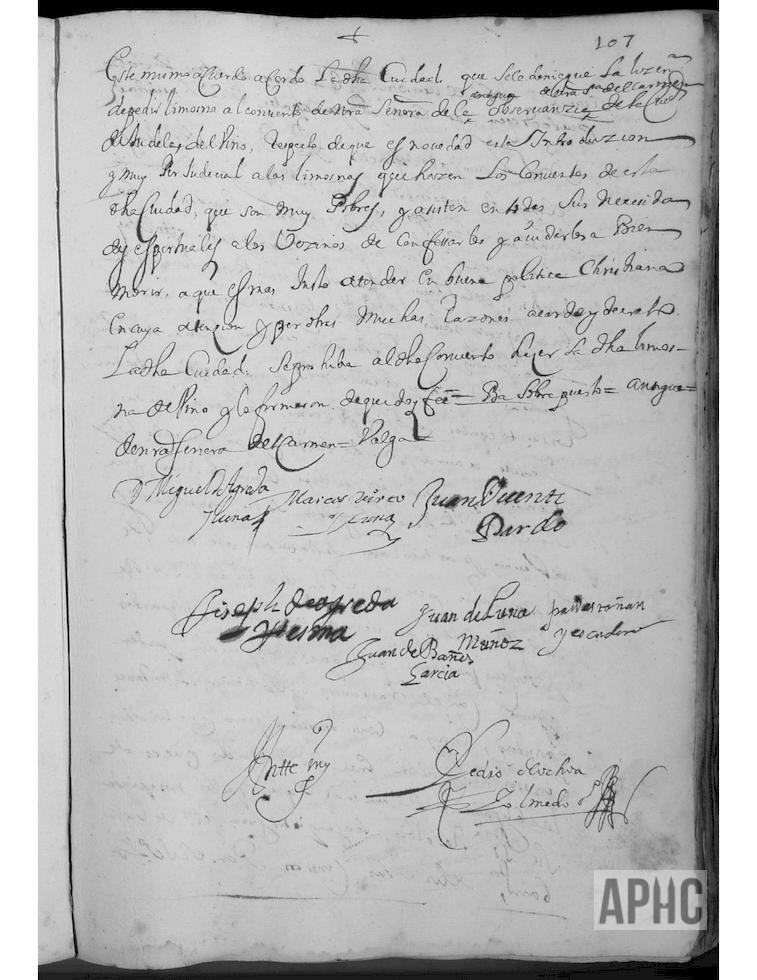 107
Este mismo acuerdo acordo La dha Ciudad. que se le deniegue La lizen^a
antigua de nra s^ra del Carmen
de pedir limosna al convento de nra Señora de la observanzia de la Ciu^d
del Pino, respecto de que es novedad esta Introduzion
y muy Perjudicial a las limosnas que hazen Los Conventos de esta
dha Ciudad, que son muy Pobres, y asisten en todas Sus Necesida
des espirituales a los Vezinos de Confessarlos y aiudarlos a Bien
Morir, a que es mas Justo atender en buena politica Christiana
En cuya atenzion y por otras Muchas Razones acordo y decreto
La dha Ciudad. Se prohiba al dho Convento hazer La dha limos-
na del Pino y lo firmaron. de que doy fee = Sobre puesto = antigua =
de nra Señora del Carmen = Valga
D Miguel de Agreda
y luna
Marcos
y Luna
Juan Puente
Pardo
Joseph de agreda
y lesma
Juan de Luna
Muñoz
y escudero
Juan de Baños
Garcia
Antte my
Pedro de Ochoa
Olmedo
APHC